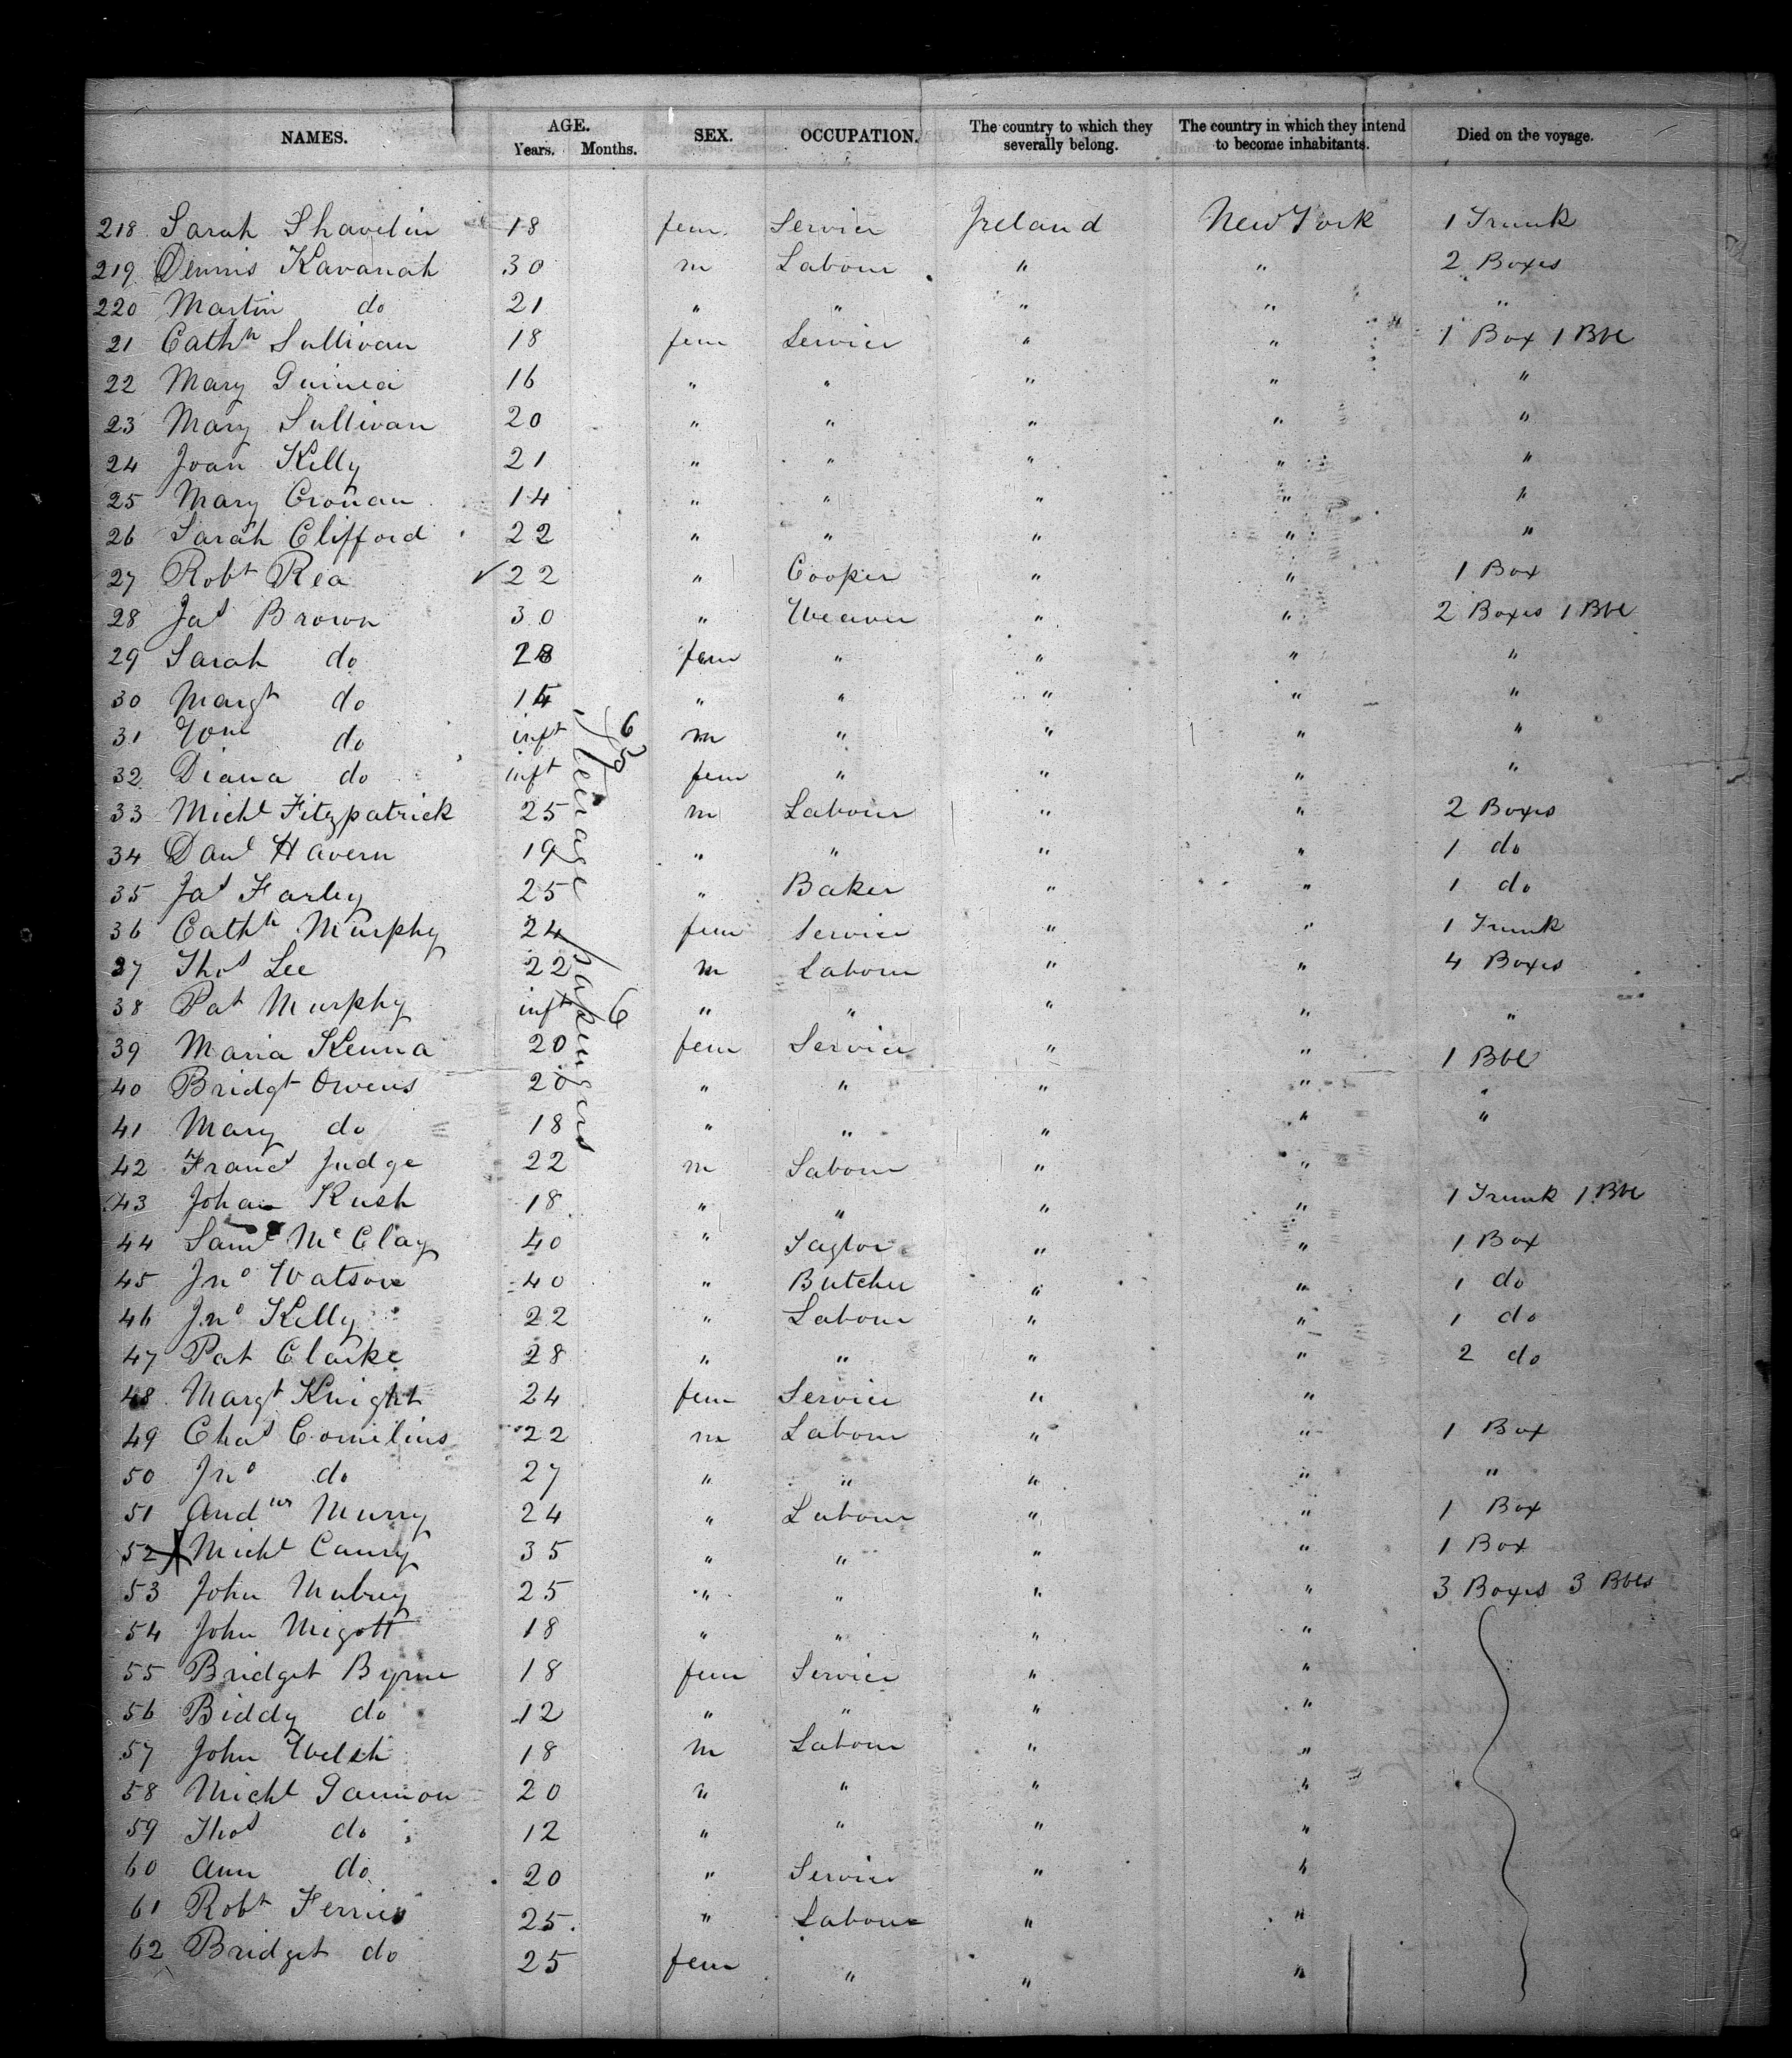 NAMES. AGE. Years. Months. SEX. OCCUPATION. The country to which they severally belong. The country in which they intend to become inhabitants. Died on the voyage.
218 Sarah Shavelin 18 fem. Servier Ireland New York 1 Trunk
219 Dennis Kavanah 30 m Labour " " 2 Boxes
220 Martin do 21 " " " " "
21 Cathn Sullivan 18 fem Servier " " 1 Box 1 Bbl
22 Mary Guinea 16 " " " " "
23 Mary Sullivan 20 " " " " "
24 Joan Kelly 21 " " " " "
25 Mary Cronan 14 " " " " "
26 Sarah Clifford 22 " " " " "
27 Robt Rea ✓ 22 " Cooper " " 1 Box
28 Jas Brown 30 " Weaver " " 2 Boxes 1 Bbl
29 Sarah do 28 fem " " " "
30 Margt do " " " " "
31 do inft m " " " "
32 Diana do inft fem " " " "
33 Michl Fitzpatrick 25 m Labour " " 2 Boxes
34 Danl Havern 19 " " " " 1 do
35 Jas Farley 25 " Baker " " 1 do
36 Cathn Murphy 24 fem Servier " " 1 Trunk
37 Thos Lee 22 m Labour " " 4 Boxes
38 Pat Murphy inft 6 " " " " "
39 Maria Kenna 20 fem Servier " " 1 Bbl
40 Bridgt Owens 20 " " " " "
41 Mary do 18 " " " " "
42 Francs Judge 22 m Labour " "
43 Johan Rush 18 " " " " 1 Trunk 1 Bbl
44 Saml McClay 40 " Taylor " " 1 Box
45 Jno Watson 40 " Butcher " " 1 do
46 Jno Kelly 22 " Labour " " 1 do
47 Pat Clarke 28 " " " " 2 do
48 Margt Knight 24 fem Servier " "
49 Chas Cornelius 22 m Labour " " 1 Box
50 Jno do 27 " " " " "
51 Andw Murry 24 " Labour " " 1 Box
52 X Michl Canry 35 " " " " 1 Box
53 John Mulrey 25 " " " " 3 Boxes 3 Bbls
54 John Migott 18 " " " "
55 Bridget Byrne 18 fem Servier " "
56 Biddy do 12 " " " "
57 John Welsh 18 m Labour " "
58 Michl Gannon 20 " " " "
59 Thos do 12 " " " "
60 Ann do 20 " Servier " "
61 Robt Ferries 25 " Labour " "
62 Bridget do 25 fem " " "
Steerage passengers
63